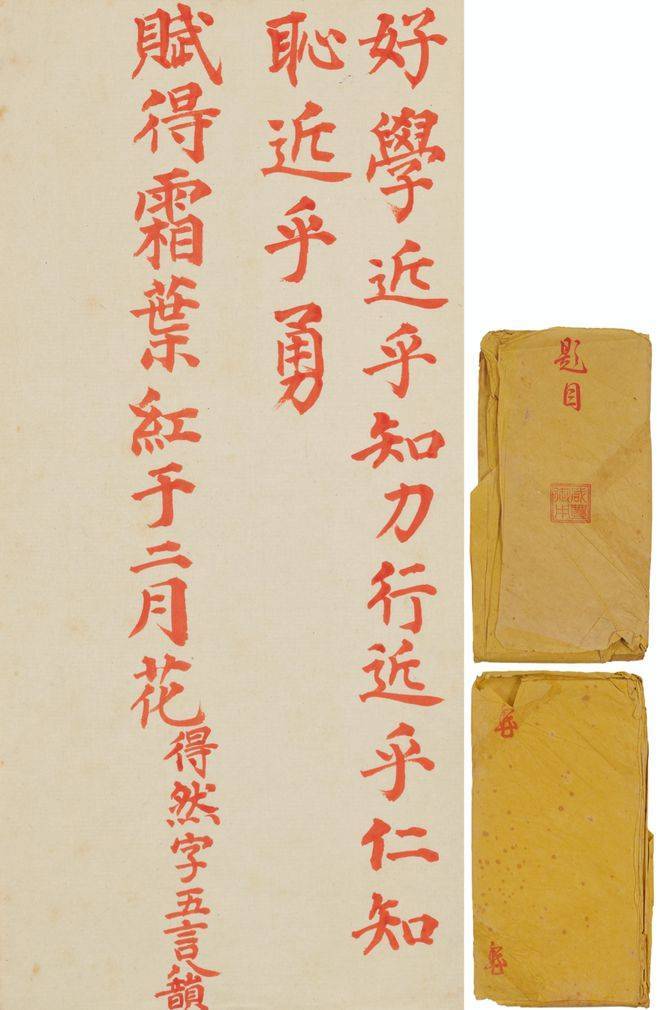 好學近乎知力行近乎仁知
恥近乎勇
賦得霜葉紅于二月花
得然字五言八韻
題目
咸豐
御用